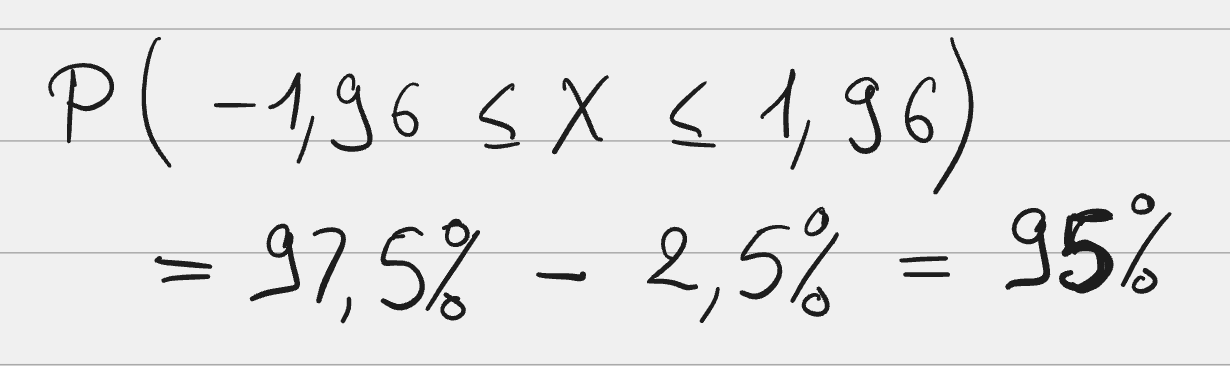 P(-1,96 ≤ X ≤ 1,96)
= 97,5% - 2,5% = 95%